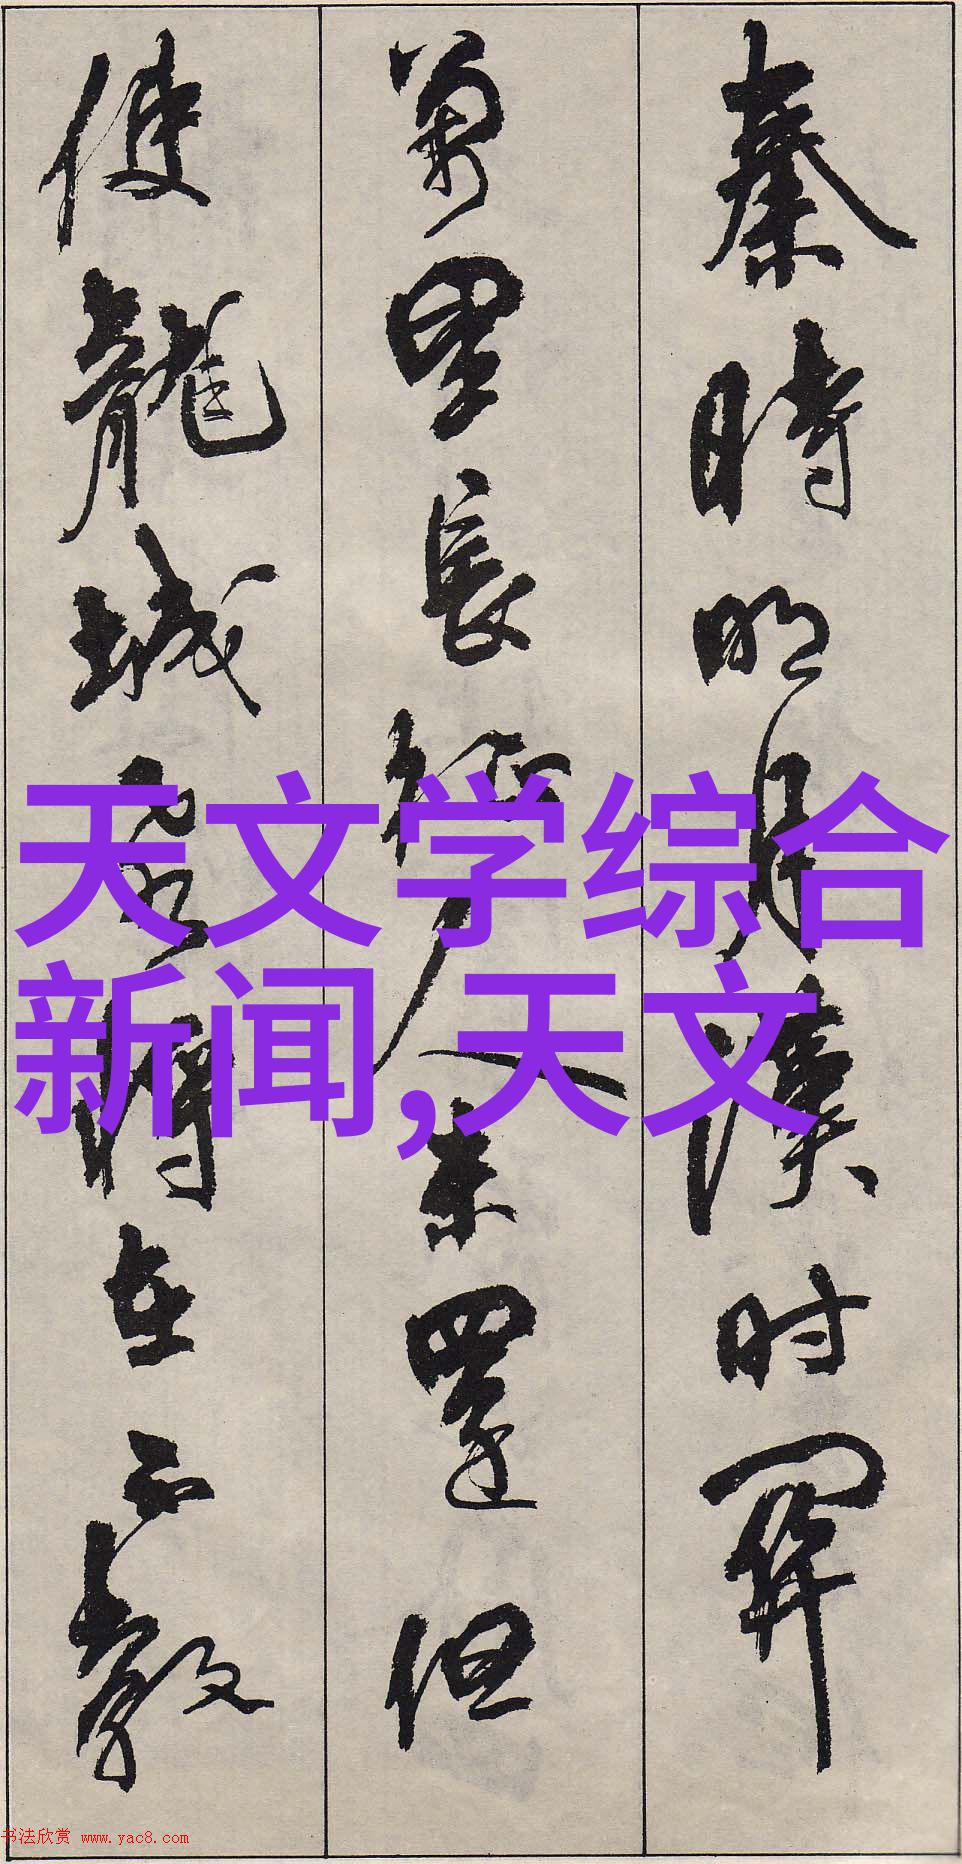 秦時明月漢时關
萬里長征人未還但
使龍城飛將在不教
天文学综合
新闻,天文
书法欣赏 www.yac8.com